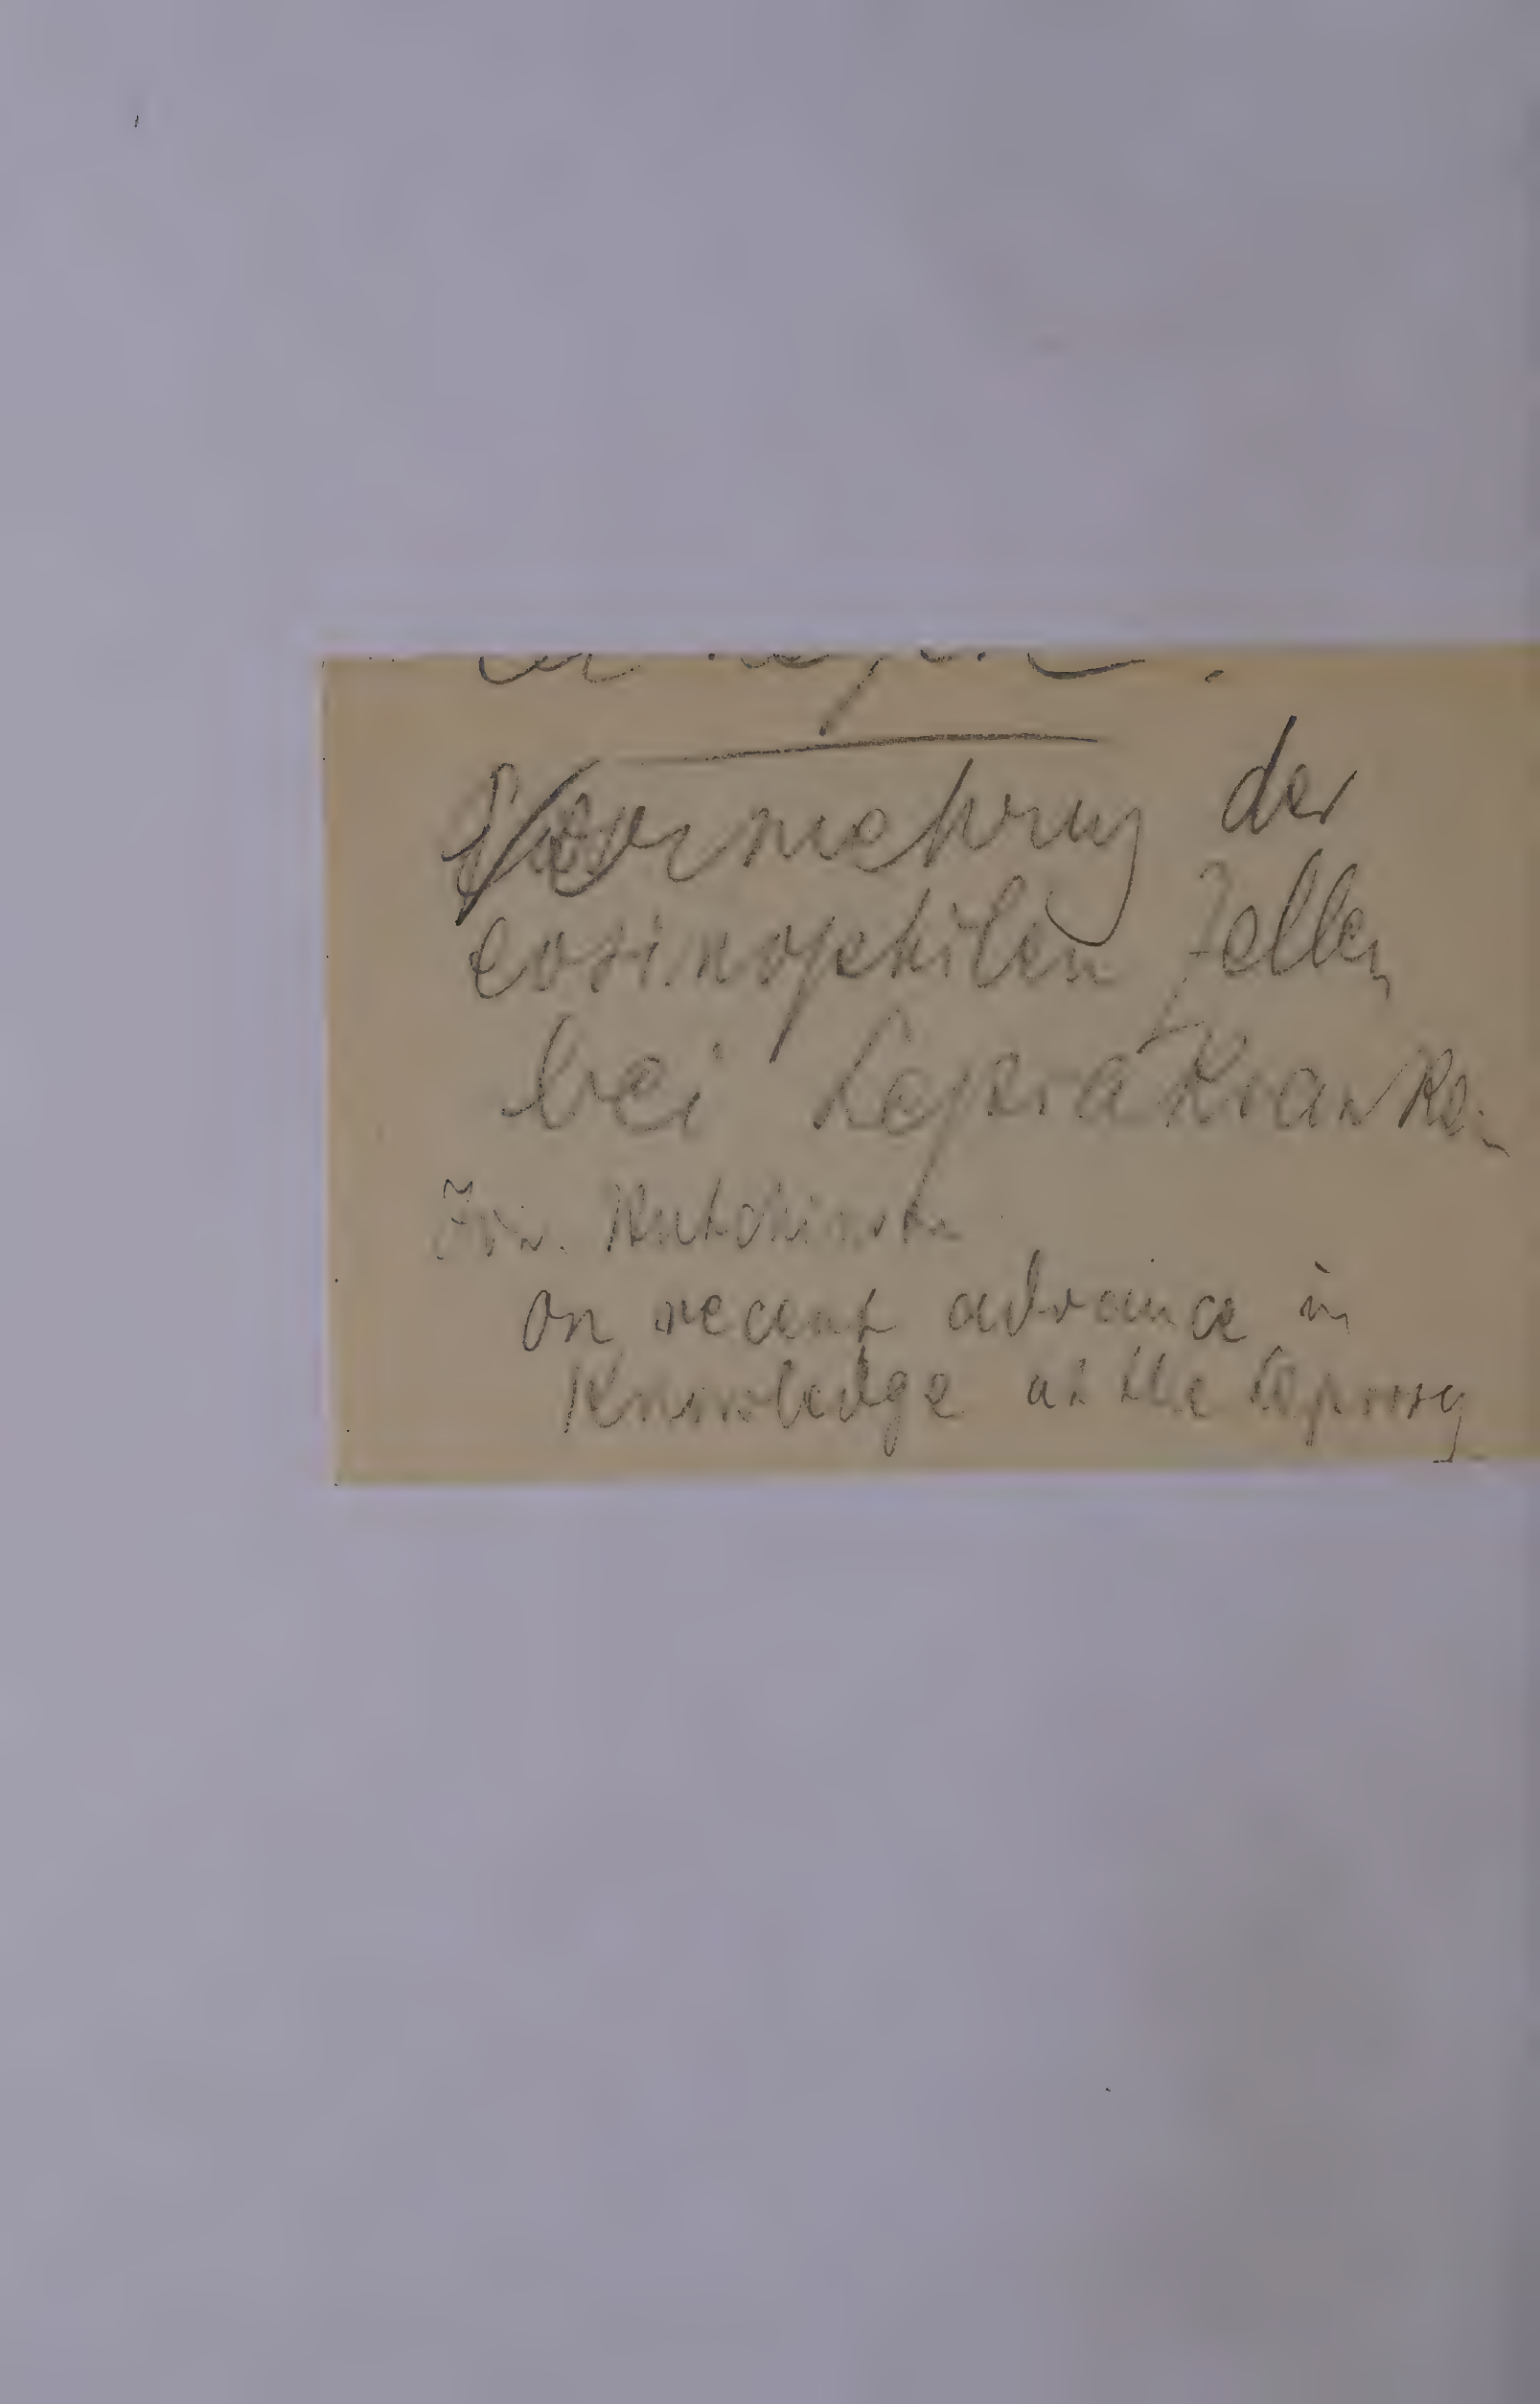 Vermehrung der
eosinophilen Zellen
bei Leprakranken
Jon. Hutchinson
on recent advance in
Knowledge at the leprosy